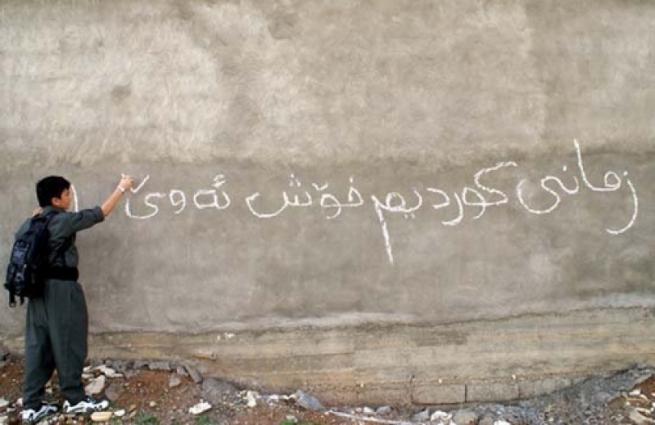 زمانی کوردیم خۆش ئەوێ